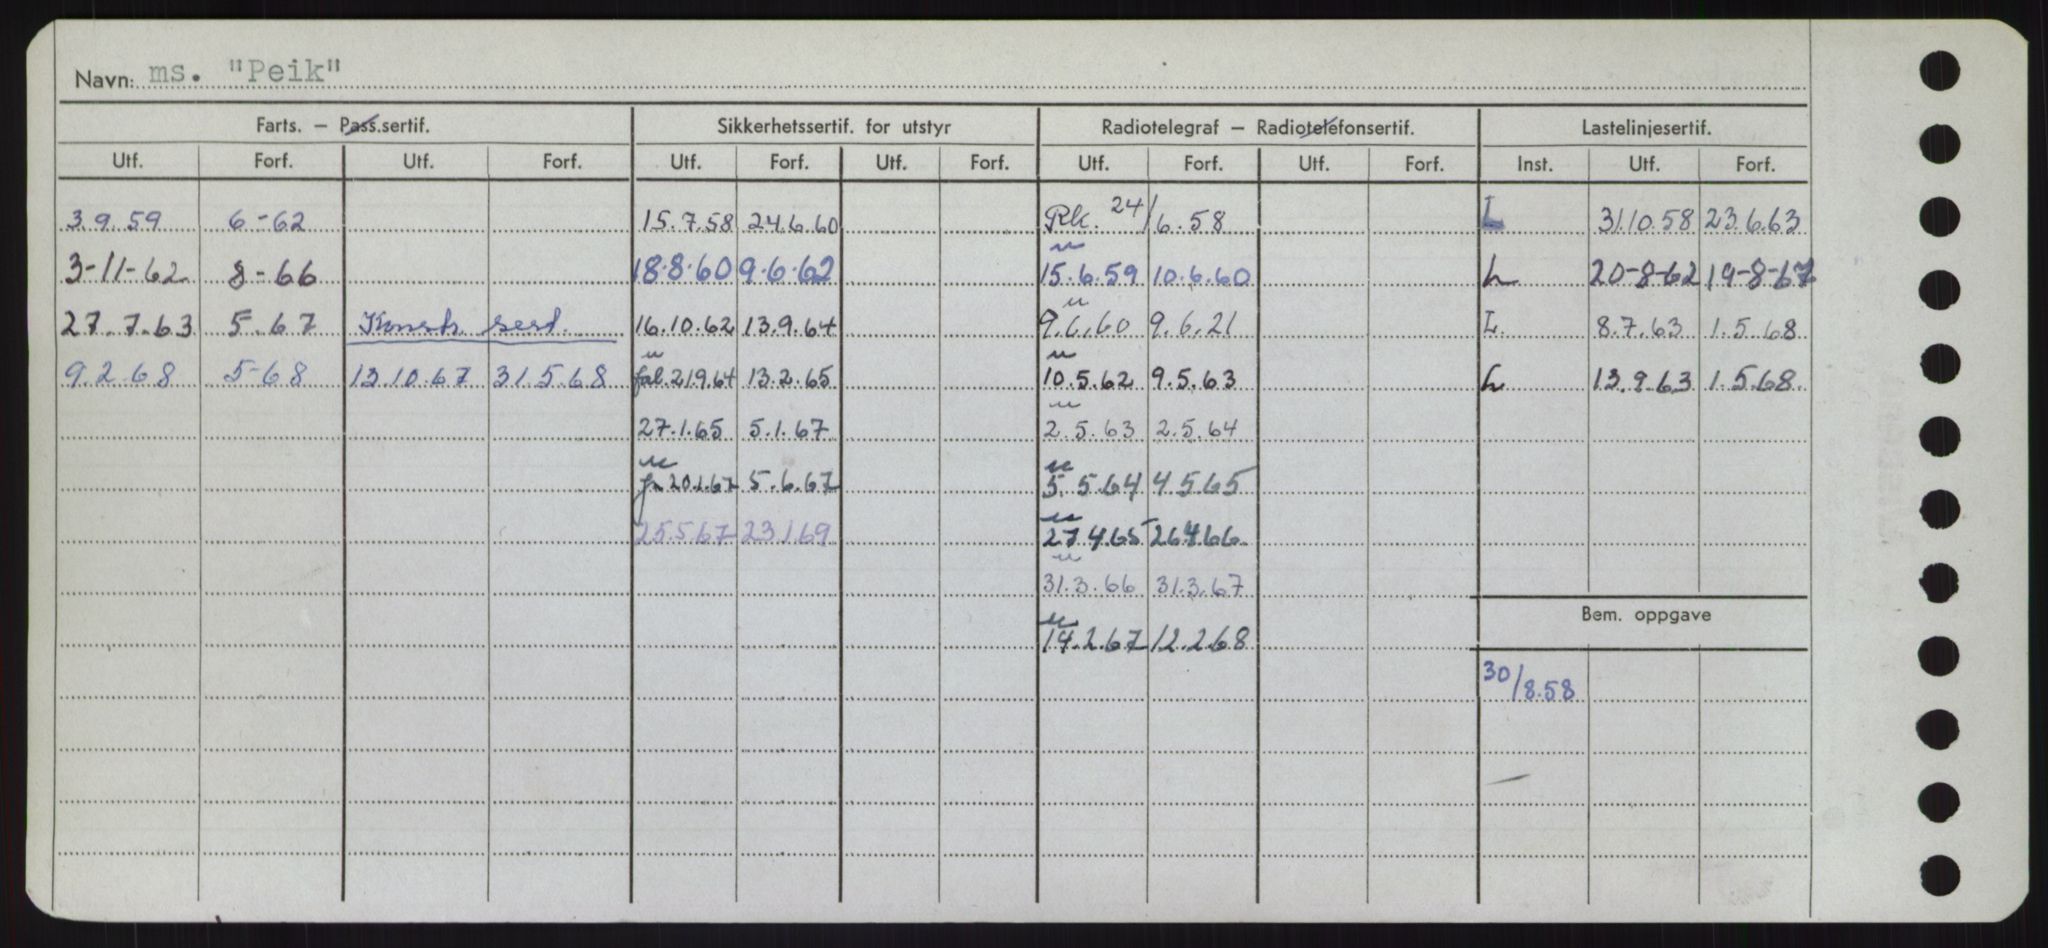 Navn: ms. "Peik"
Farts. — Pass.sertif. Sikkerhetssertif. for utstyr Radiotelegraf — Radiotelefonsertif. Lastelinjesertif.
Utf. Forf. Utf. Forf. Utf. Forf. Utf. Forf. Utf. Forf. Utf. Forf. Inst. Utf. Forf.
3.9.59 6-62 15.7.58 24.6.60 Rk. 24/6.58 L 31.10.58 23.6.63
3-11-62 8-66 18.8.60 9.6.62 " 15.6.59 10.6.60 L 20-8-62 19-8-67
27.7.63 5.67 Konstr. sert. 16.10.62 13.9.64 " 9.6.60 9.6.21 L. 8.7.63 1.5.68
9.2.68 5-68 13.10.67 31.5.68 " 21.9.64 13.2.65 " 10.5.62 9.5.63 L 13.9.63 1.5.68.
27.1.65 5.1.67 " 2.5.63 2.5.64
" 20.1.67 5.6.67 " 5.5.64 4.5.65
25.5.67 23.1.69 " 27.4.65 26.4.66
" 31.3.66 31.3.67
Bem. oppgave
" 14.2.67 12.2.68
30/8.58